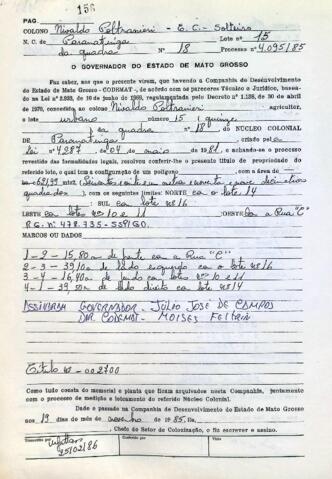 156
PAG.
COLONO Nivaldo Poltranieri - E.C. - Solteiro
N. C. de Paranatinga Lote n.º 15
da quadra N.º 18 Processo n.º 4.095/85
O GOVERNADOR DO ESTADO DE MATO GROSSO
Faz saber, aos que o presente virem, que havendo a Companhia de Desenvolvimento
do Estado de Mato Grosso - CODEMAT -, de acordo com os pareceres Técnico e Jurídico, basea-
da na Lei n.º 2.933, de 10 de junho de 1969, regulamentada pelo Decreto n.º 1.138, de 30 de abril
de 1970, concedido, ao colono Nivaldo Poltranieri agricultor,
o lote urbano n.º 15 (quinze)
da quadra n.º 18 do NÚCLEO COLONIAL
de Paranatinga, criado pela
lei 4.287 de 04 de maio de 1981, e achando-se o processo
revestido das formalidades legais, resolveu conferir-lhe o presente título de propriedade do
referido lote, o qual tem a configuração de um poligono com a área de
quadrados), com os seguintes limites: NORTE com o lote 14
SUL com o lote 16
LESTE com os lotes nºs 10 e 11 OESTE com a Rua "C"
R.G. nº 478.735-SSP/GO.
MARCOS OU DADOS
1-2 - 15,80m de frente com a Rua "C"
2-3 - 39,10m de lado esquerdo com o lote nº 16
3-4 - 16,40m de fundo com os lotes nºs 10 e 11
4-1 - 39,50m de lado direito com o lote nº 14
ASSINARAM GOVERNADOR - JÚLIO JOSÉ DE CAMPOS
DIR. CODEMAT - MOISES FELTRIN
Título nº 002700
Como tudo consta do memorial e planta que ficam arquivados nesta Companhia, juntamente
com o processo de medição e loteamento do referido Núcleo Colonial.
Dado e passado na Companhia de Desenvolvimento do Estado de Mato Grosso
aos 19 dias do mês de novembro de 1985. Eu,
, Chefe do Setor de Colonização, o fiz escrever e assino.
Transcrito por
Conferido por
Visto
25/02/86